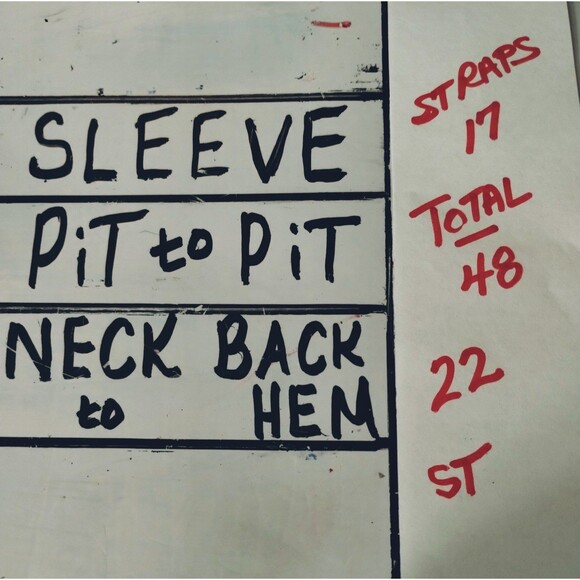 SLEEVE
PiT to PiT
NECK BACK
to HEM
STRAPS
17
TOTAL
48
22
ST